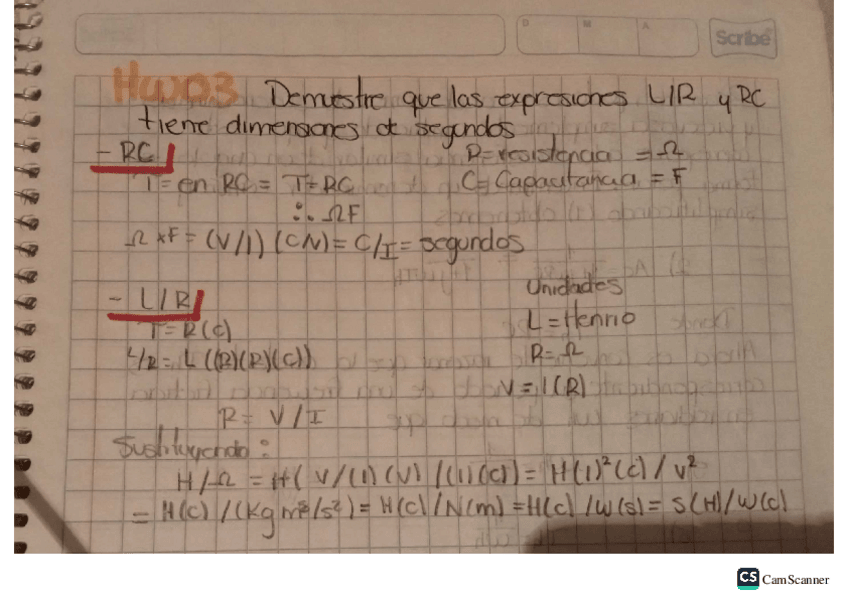 Scribe
D M A
HW03 Demuestre que las expresiones L/R y RC
tiene dimensiones de segundos
- RC
R=resistencia = Ω
T= en RC = T=RC
C= Capacitancia = F
∴ ΩF
Ω xF = (V/I) (C/V) = C/I = segundos
- L/R
Unidades
T= R(c)
L = Henrio
L/R = L ((R)(R)(c))
R= Ω
V = I(R)
R= V/I
Sustituyendo :
H/Ω = H( V/(I) (V) /(I)(c)) = H(I)²(c) / V²
= H(c) /(kg m²/s²) = H(c) /N(m) = H(c) /W(s) = S(H)/W(c)
CS CamScanner